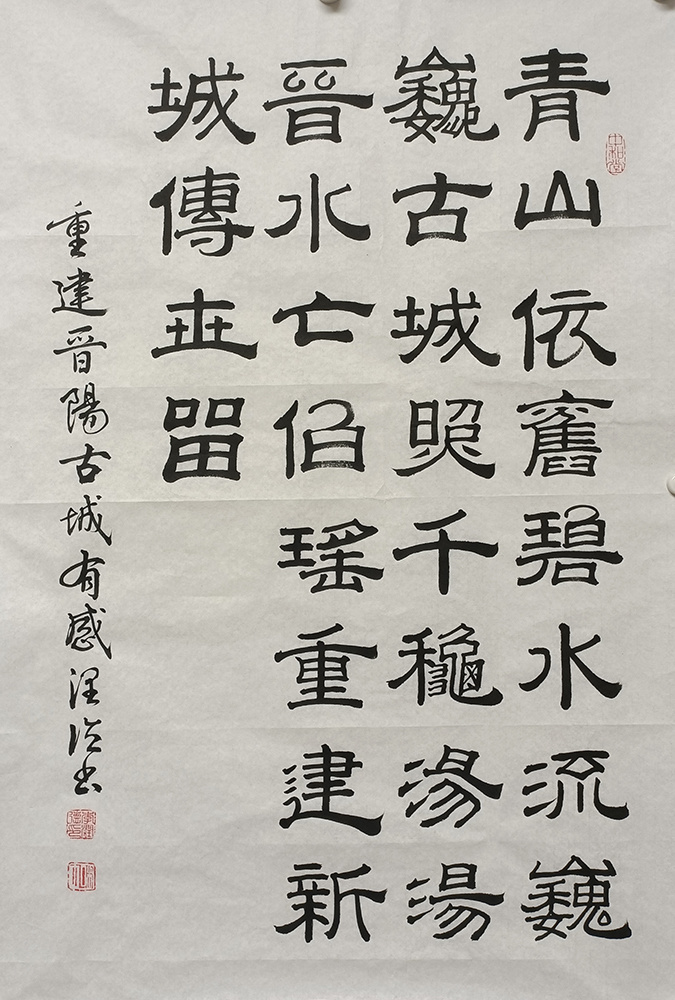 青山依舊碧水流巍
巍古城照千龝湯湯
晉水亡伯瑤重建新
城傳世留
重建晉陽古城有感
中和堂